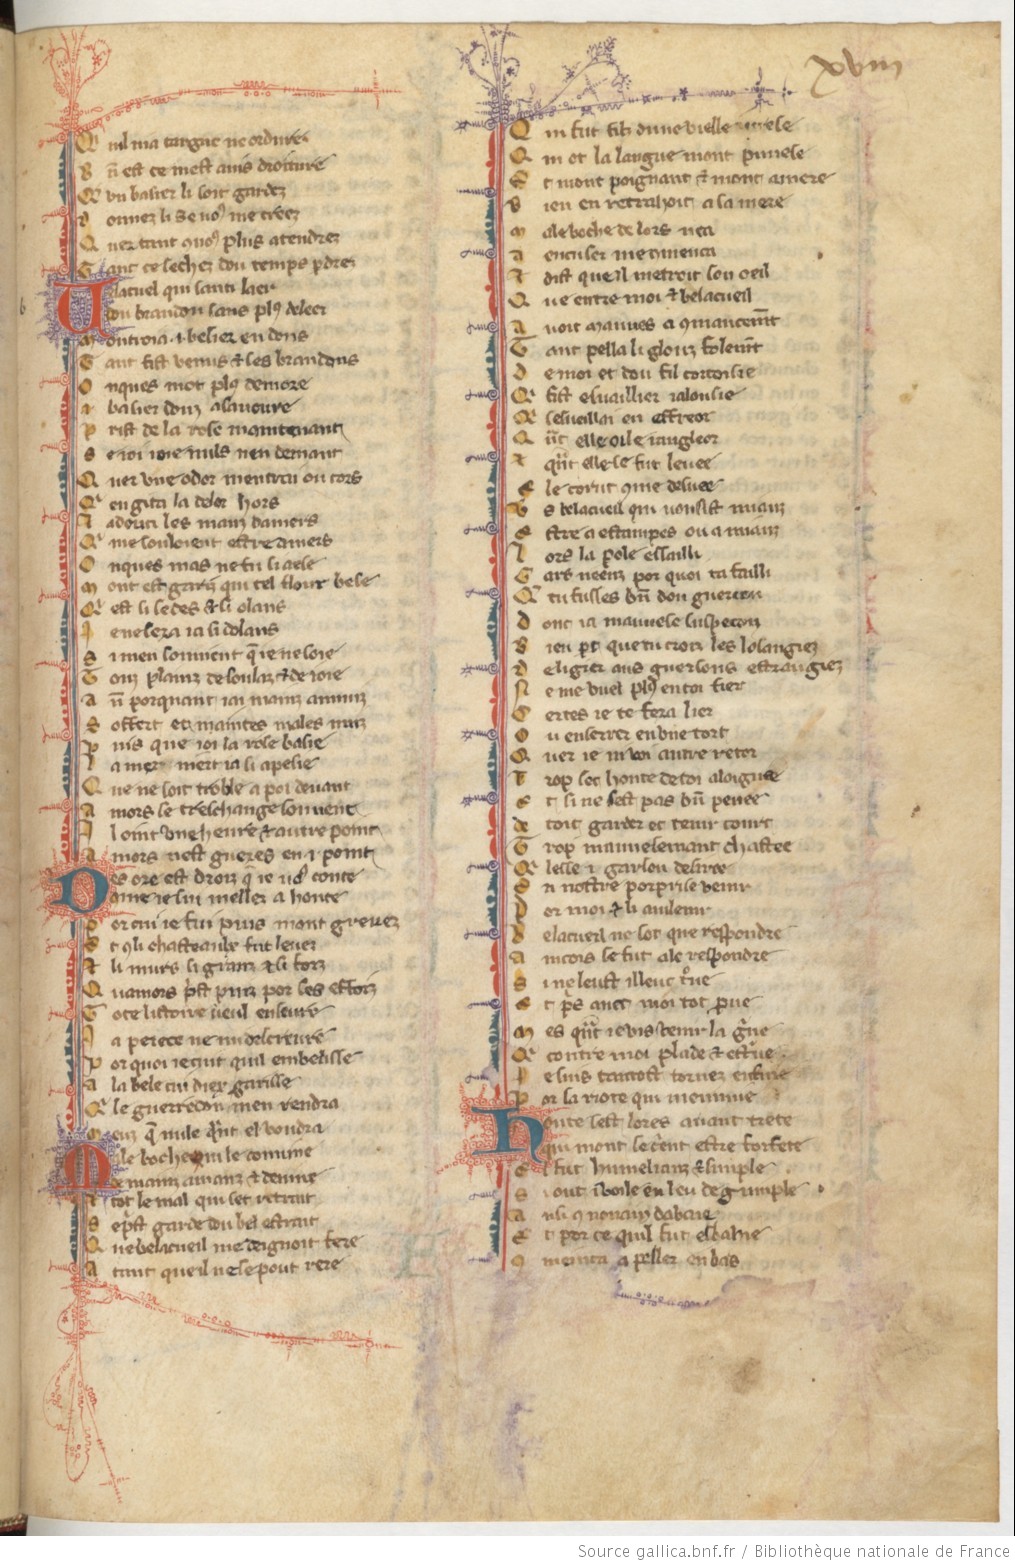 xviii
Qu nul ma targue ne ordure
B n est ce mest auis droiture
Qun baisier li soit gardez
Donnez li se uos me creez
Quer tant quos plus atendrez
Tant ce sechez dou temps pdrez
lacueil qui senti laer
dou brandon sans plus deleer
Mottroia .i. besier en dons
Tant fist venus et les brandons
Onques mot plus demore
i baisier douz asauoure
Pris de la rose maintenant
Se ioi ioie nuls nen demant
Quer vne odor mentra ou cors
Qui en gita la dolor hors
Et adouci les maus damers
Qui me souloient estre amers
Onques mas ne fu si aese
Mont est gariz qui tel flour bese
Qui est si sedes et si olans
Ie ne sera ia si dolans
Si men souuient que ie ne soie
Touz plains de soulaz et de ioie
A n porquant iai mainz anuiz
Soffert et maintes males nuiz
Puis que ioi la rose baisie
La mer niert ia si apesie
Que ne soit troble a poi de uant
Amors se treschange souuent
Il oint vne heure et autre point
Amors nest gueres en .i. point
Des ore est droiz que ie uos conte
Come ie fui mellez a honte
Por cui ie fui puis mont greuez
Et qui chasteaulx fut leuez
Et li murs li granz et li forz
Quamors prist puis por ses efforz
Tote listoire ueul ensuire
Ia perece ne miert descriure
Por quoi ie cuit quil embelisse
A la bele cui diex garisse
Qui le guerredon men rendra
Meuz que nule quant el voudra
Male boche qui le couuine
De mainz amanz et deuine
Et tot le mal qui set retrait
Se prist garde dou bel atrait
Que belacueil me deignoit fere
Atant que il ne se pout tere
Qui fut filz dune vielle irese
Qui ot la langue mont punese
Et mont poignant et mont amere
Bien en retrahoit a la mere
Male boche de lors nea
A encuser me comenca
Et dist que il metroit son oeil
Que entre moi et belacueil
Auoit mauues acointement
Tant pella li glouz folement
De moi et dou fil cortoisie
Qui fist esuaillier ialousie
Qui se sueilla en effreor
Quant elle oi le iangleor
Et quant elle se fut leuee
Ele corut come desuee
Vs belacueil qui uousist mianz
Estre a estampes ou a mianz
Lors la pole essailli
Gars neenz por quoi ta failli
Qui tu fusses bien dou guercon
Dont ia mauuese suspecon
Bien pt que tu crois les losangiez
De ligier aus guersons estrangiez
Ne me vuel plus en toi fier
Certes ie te fera lier
Ou enserrer en vne tort
Quer ie ni voi autre retor
Trop sest honte de toi aloignee
Et si ne sest pas bien penee
De toit garder et tenir court
Trop mauuesemant chastee
Qui lesse .i. garson desiree
En nostre porprise venir
Por moi et li auilenir
Belacueil ne sot que respondre
Aincois se fut ale respondre
Si ne leust illeuc troue
Et pris auec moi tot proue
Mes quant ie vis venir la grue
Qui contre moi plaide et estrue
Ie suis tantost tornez en fuie
Por la riote qui mennuie
Honte sest lores auant trete
qui mont se crent estre forfete
El fut humelianz et simple
Si out i uoile en leu de guimple
Ausi come nonain dabaie
Et por ce quil fut esbahie
Comenca a pesler en bas
Source gallica.bnf.fr / Bibliothèque nationale de France